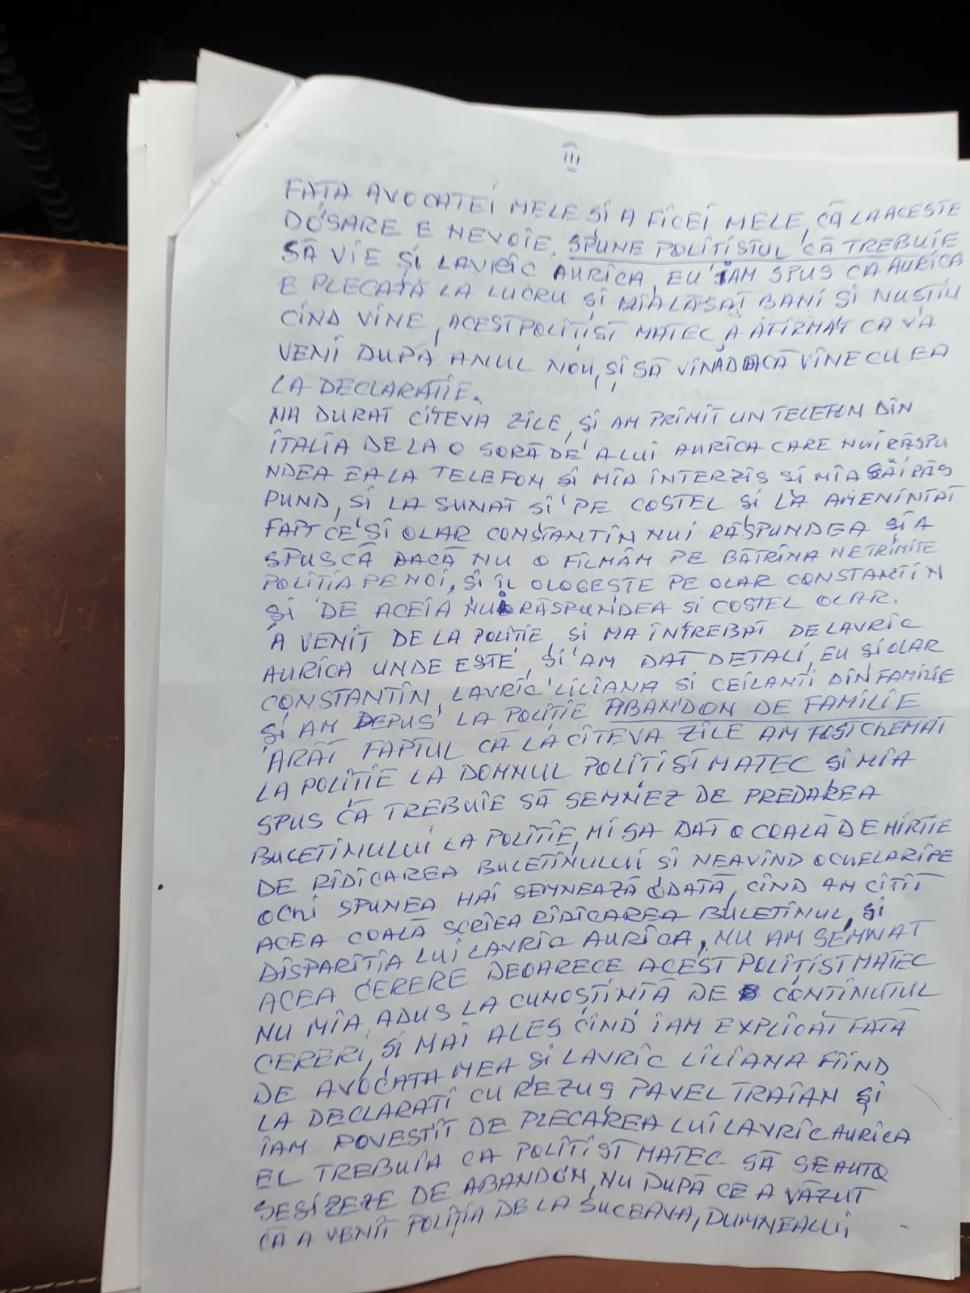 III
FAȚA AVOCATEI MELE ȘI A FICEI MELE, CĂ LA ACESTE
DOSARE E NEVOIE, SPUNE POLITISTUL CĂ TREBUIE
SĂ VIE ȘI LAVRIC AURICA, EU IAM SPUS CA AURICA
E PLECATĂ LA LUCRU ȘI MIA LĂSAT BANI ȘI NU ȘTIU
CÎND VINE, ACEST POLITIST MATEC A AFIRMAT CA VA
VENI DUPĂ ANUL NOU, ȘI SĂ VIN DACĂ VINE CU EA
LA DECLARATIE.
NA DURAT CÎTEVA ZILE, ȘI AM PRIMIT UN TELEFON DIN
ITALIA DE LA O SORĂ DE A LUI AURICA CARE NUI RĂSPU
NDEA EA LA TELEFON SI MIA INTERZIS SI MIA SĂ IRĂS
PUND, SI LA SUNAT SI PE COSTEL SI LA AMENINTAT
FAPT CE ȘI OLAR CONSTANTIN NUI RĂSPUNDEA ȘI A
SPUS CĂ DACĂ NU O FILMĂM PE BĂTRINA NE TRIMITE
POLITIA PE NOI, SI ÎL OLOGEȘTE PE OLAR CONSTANTIN
ȘI DE ACEIA NUI RĂSPUNDEA SI COSTEL OLAR.
A VENIT DE LA POLITIE, SI MA INTREBAT DE LAVRIC
AURICA UNDE ESTE, ȘI AM DAT DETALI, EU SI OLAR
CONSTANTIN, LAVRIC LILIANA SI CEILANTI DIN FAMILIE
ȘI AM DEPUS LA POLITIE ABANDON DE FAMILIE
ARĂT FAPTUL CĂ LA CÎTEVA ZILE AM FOST CHEMAT
LA POLITIE LA DOMNUL POLITIST MATEC ȘI MIA
SPUS CĂ TREBUIE SĂ SEMNEZ DE PREDAREA
BULETINULUI LA POLITIE, MI SA DAT O COALĂ DE HIRTIE
DE RIDICAREA BULETINULUI SI NEAVIND OCHELARI PE
OCHI SPUNEA HAI SEMNEAZĂ ODATĂ, CÎND AM CITIT
ACEA COALĂ SCRIEA RIDICAREA BULETINUL, ȘI
DISPARITIA LUI LAVRIC AURICA, NU AM SEMNAT
ACEA CERERE DEOARECE ACEST POLITIST MATEC
NU MIA ADUS LA CUNOSTINTĂ DE CONTINUTUL
CERERI, SI MAI ALES CÎND IAM EXPLICAT FATĂ
DE AVOCATA MEA SI LAVRIC LILIANA FIIND
LA DECLARATI CU REZUȘ PAVEL TRAIAN ȘI
IAM POVESTIT DE PLECAREA LUI LAVRIC AURICA
EL TREBUIA CA POLITIST MATEC SĂ SE AUTO
SESIZEZE DE ABANDON, NU DUPĂ CE A VĂZUT
CĂ A VENIT POLIȚIA DE LA SUCEAVA, DUMNEALUI